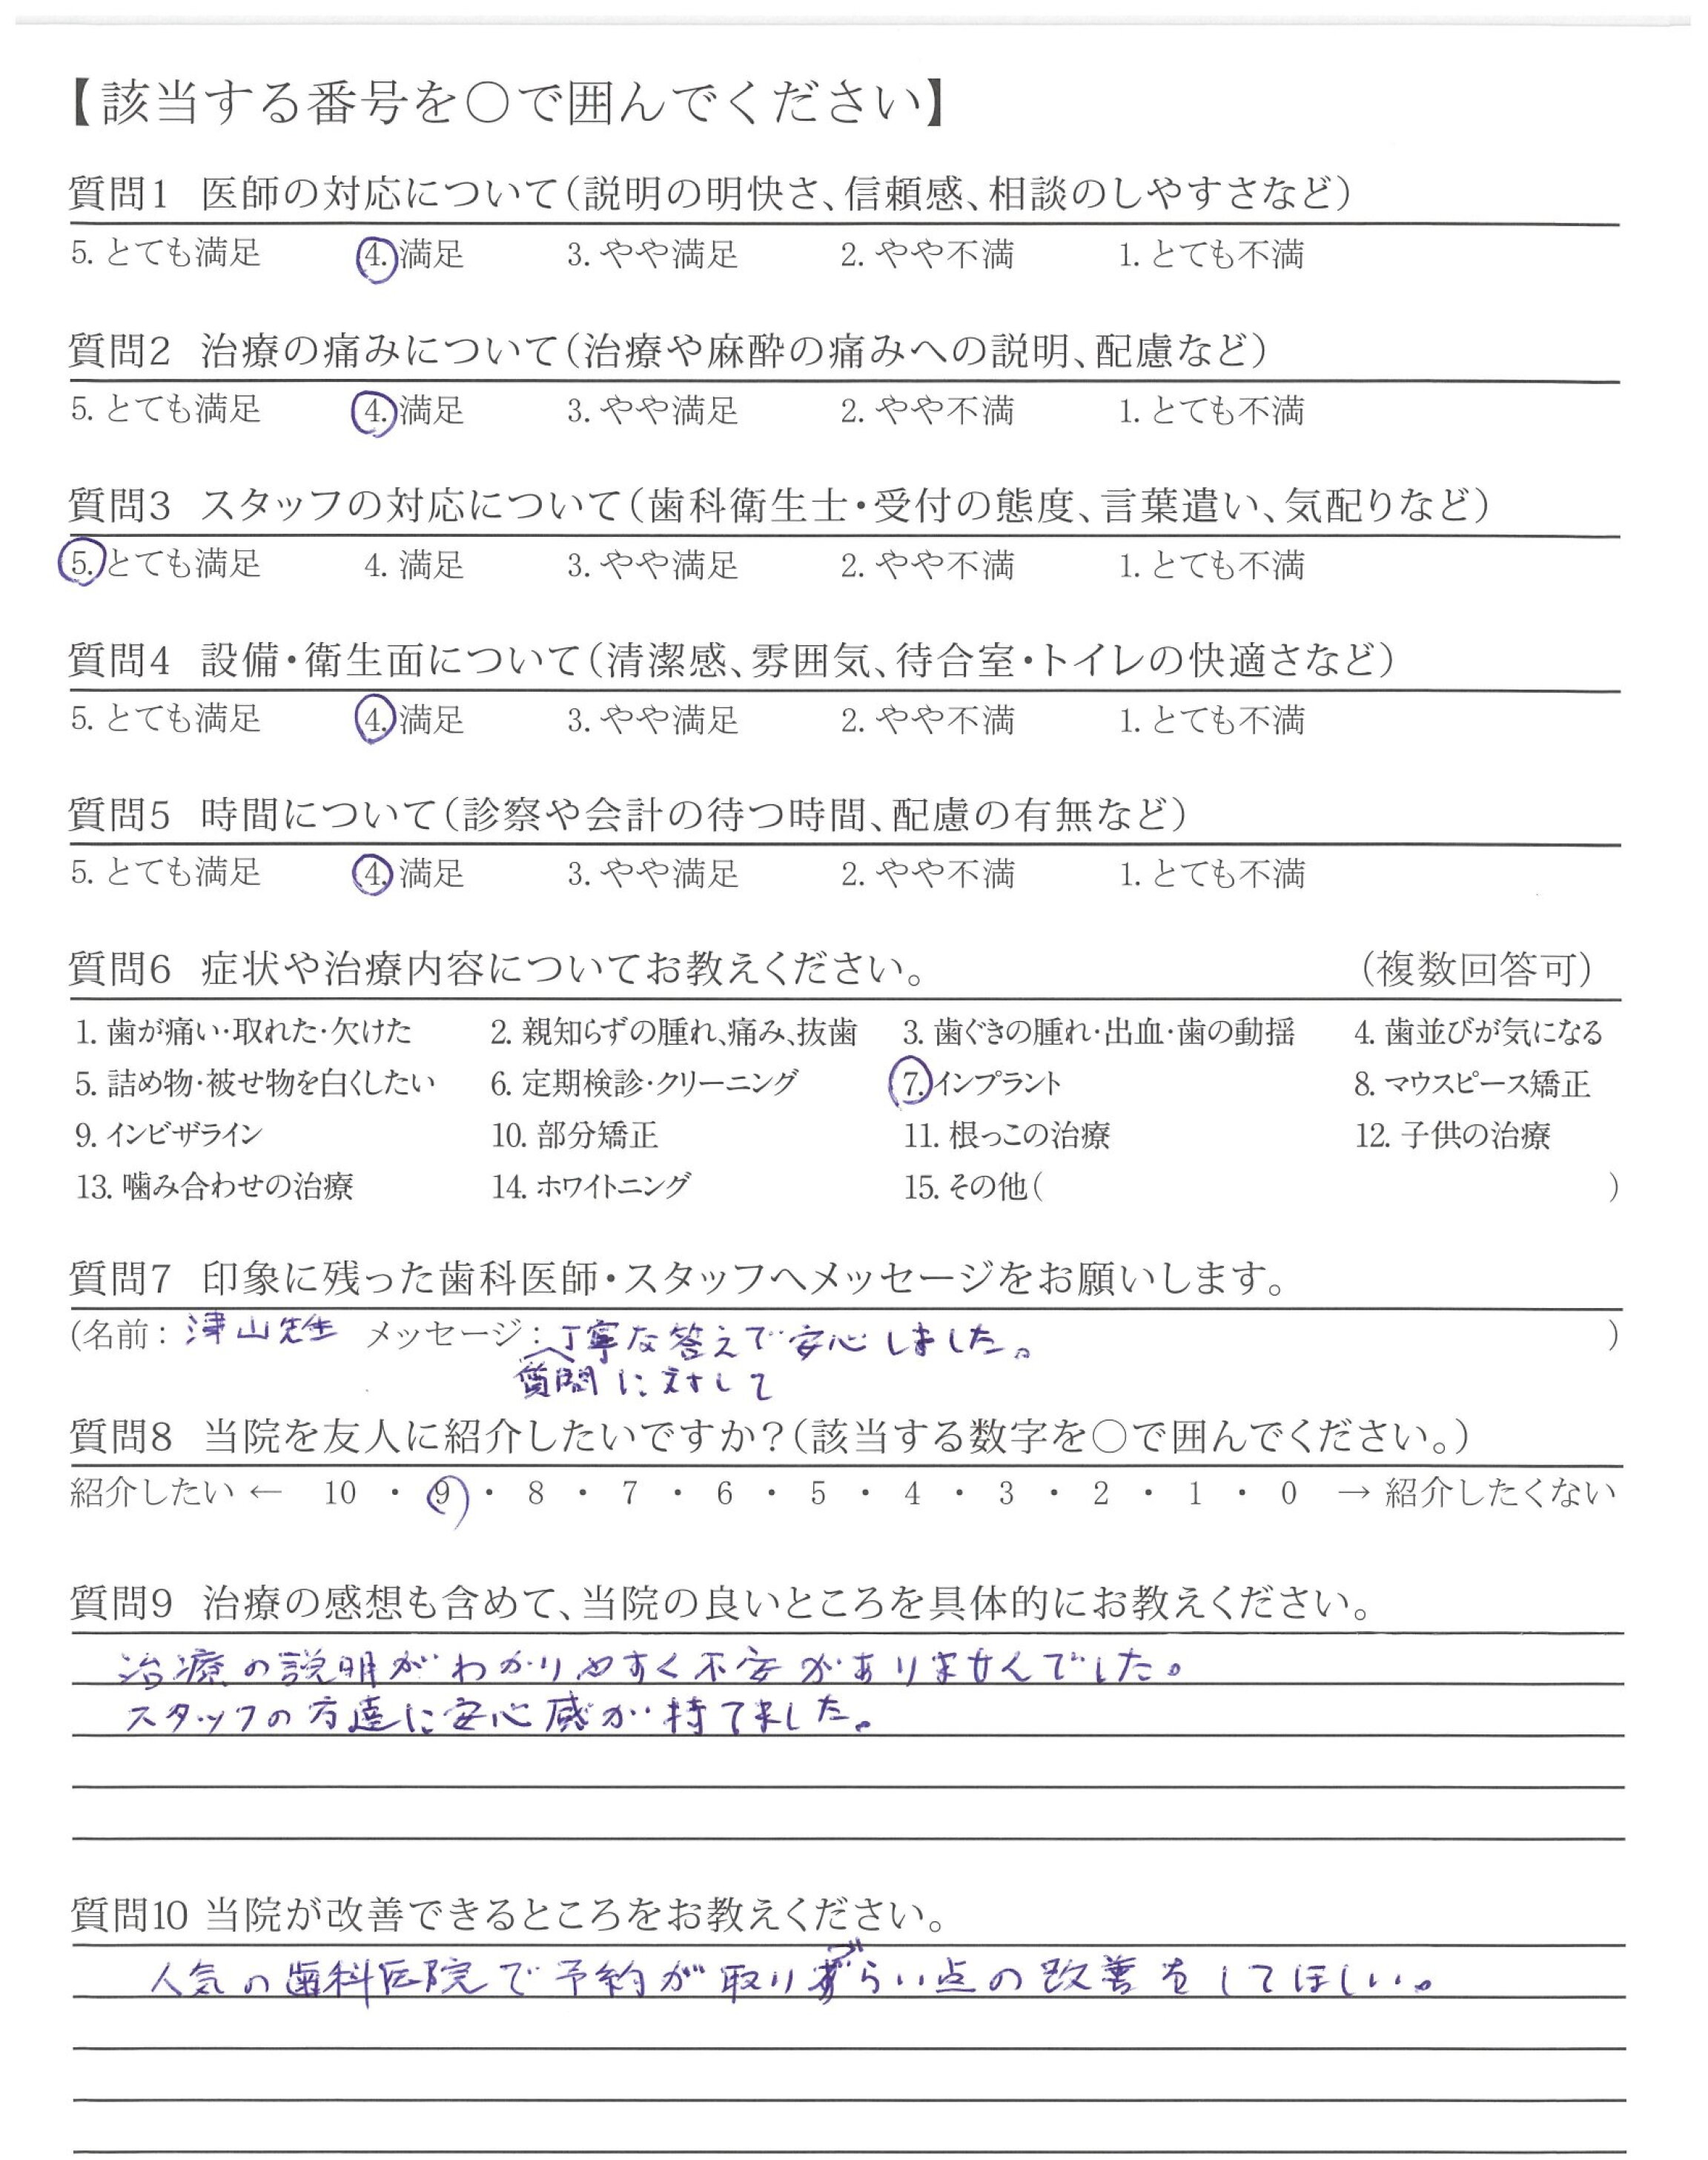 【該当する番号を〇で囲んでください】
質問1 医師の対応について（説明の明快さ、信頼感、相談のしやすさなど）
5. とても満足 4. 満足 3. やや満足 2. やや不満 1. とても不満
質問2 治療の痛みについて（治療や麻酔の痛みへの説明、配慮など）
5. とても満足 4. 満足 3. やや満足 2. やや不満 1. とても不満
質問3 スタッフの対応について（歯科衛生士・受付の態度、言葉遣い、気配りなど）
5. とても満足 4. 満足 3. やや満足 2. やや不満 1. とても不満
質問4 設備・衛生面について（清潔感、雰囲気、待合室・トイレの快適さなど）
5. とても満足 4. 満足 3. やや満足 2. やや不満 1. とても不満
質問5 時間について（診察や会計の待つ時間、配慮の有無など）
5. とても満足 4. 満足 3. やや満足 2. やや不満 1. とても不満
質問6 症状や治療内容についてお教えください。 （複数回答可）
1. 歯が痛い・取れた・欠けた 2. 親知らずの腫れ、痛み、抜歯 3. 歯ぐきの腫れ・出血・歯の動揺 4. 歯並びが気になる
5. 詰め物・被せ物を白くしたい 6. 定期検診・クリーニング 7. インプラント 8. マウスピース矯正
9. インビザライン 10. 部分矯正 11. 根っこの治療 12. 子供の治療
13. 噛み合わせの治療 14. ホワイトニング 15. その他（ ）
質問7 印象に残った歯科医師・スタッフへメッセージをお願いします。
（名前：津山先生 メッセージ：丁寧な答えで安心しました。 ）
質問に対して
質問8 当院を友人に紹介したいですか？（該当する数字を〇で囲んでください。）
紹介したい ← 10 ・ 9 ・ 8 ・ 7 ・ 6 ・ 5 ・ 4 ・ 3 ・ 2 ・ 1 ・ 0 → 紹介したくない
質問9 治療の感想も含めて、当院の良いところを具体的にお教えください。
治療の説明がわかりやすく不安がありませんでした。
スタッフの方達に安心感が持てました。
質問10 当院が改善できるところをお教えください。
人気の歯科医院で予約が取りづらい点の改善をしてほしい。